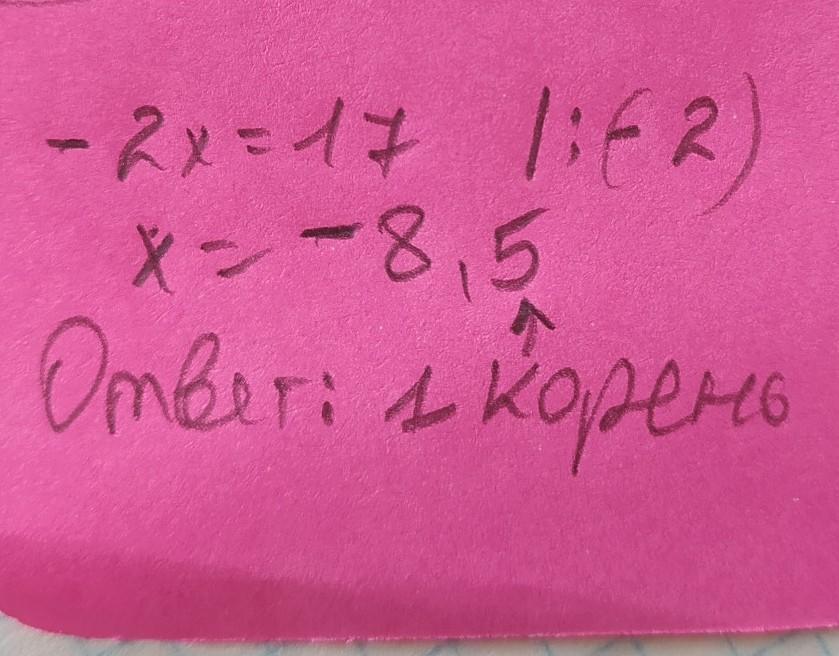 -2x=17 |:(-2)
x=-8,5
↑
Ответ: 1 корень